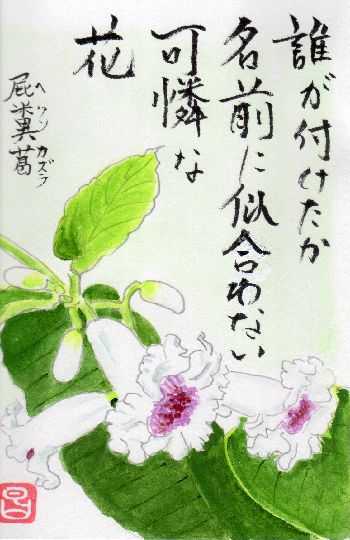 誰が付けたか
名前に似合わない
可憐な
花
屁糞葛
ヘクソカズラ